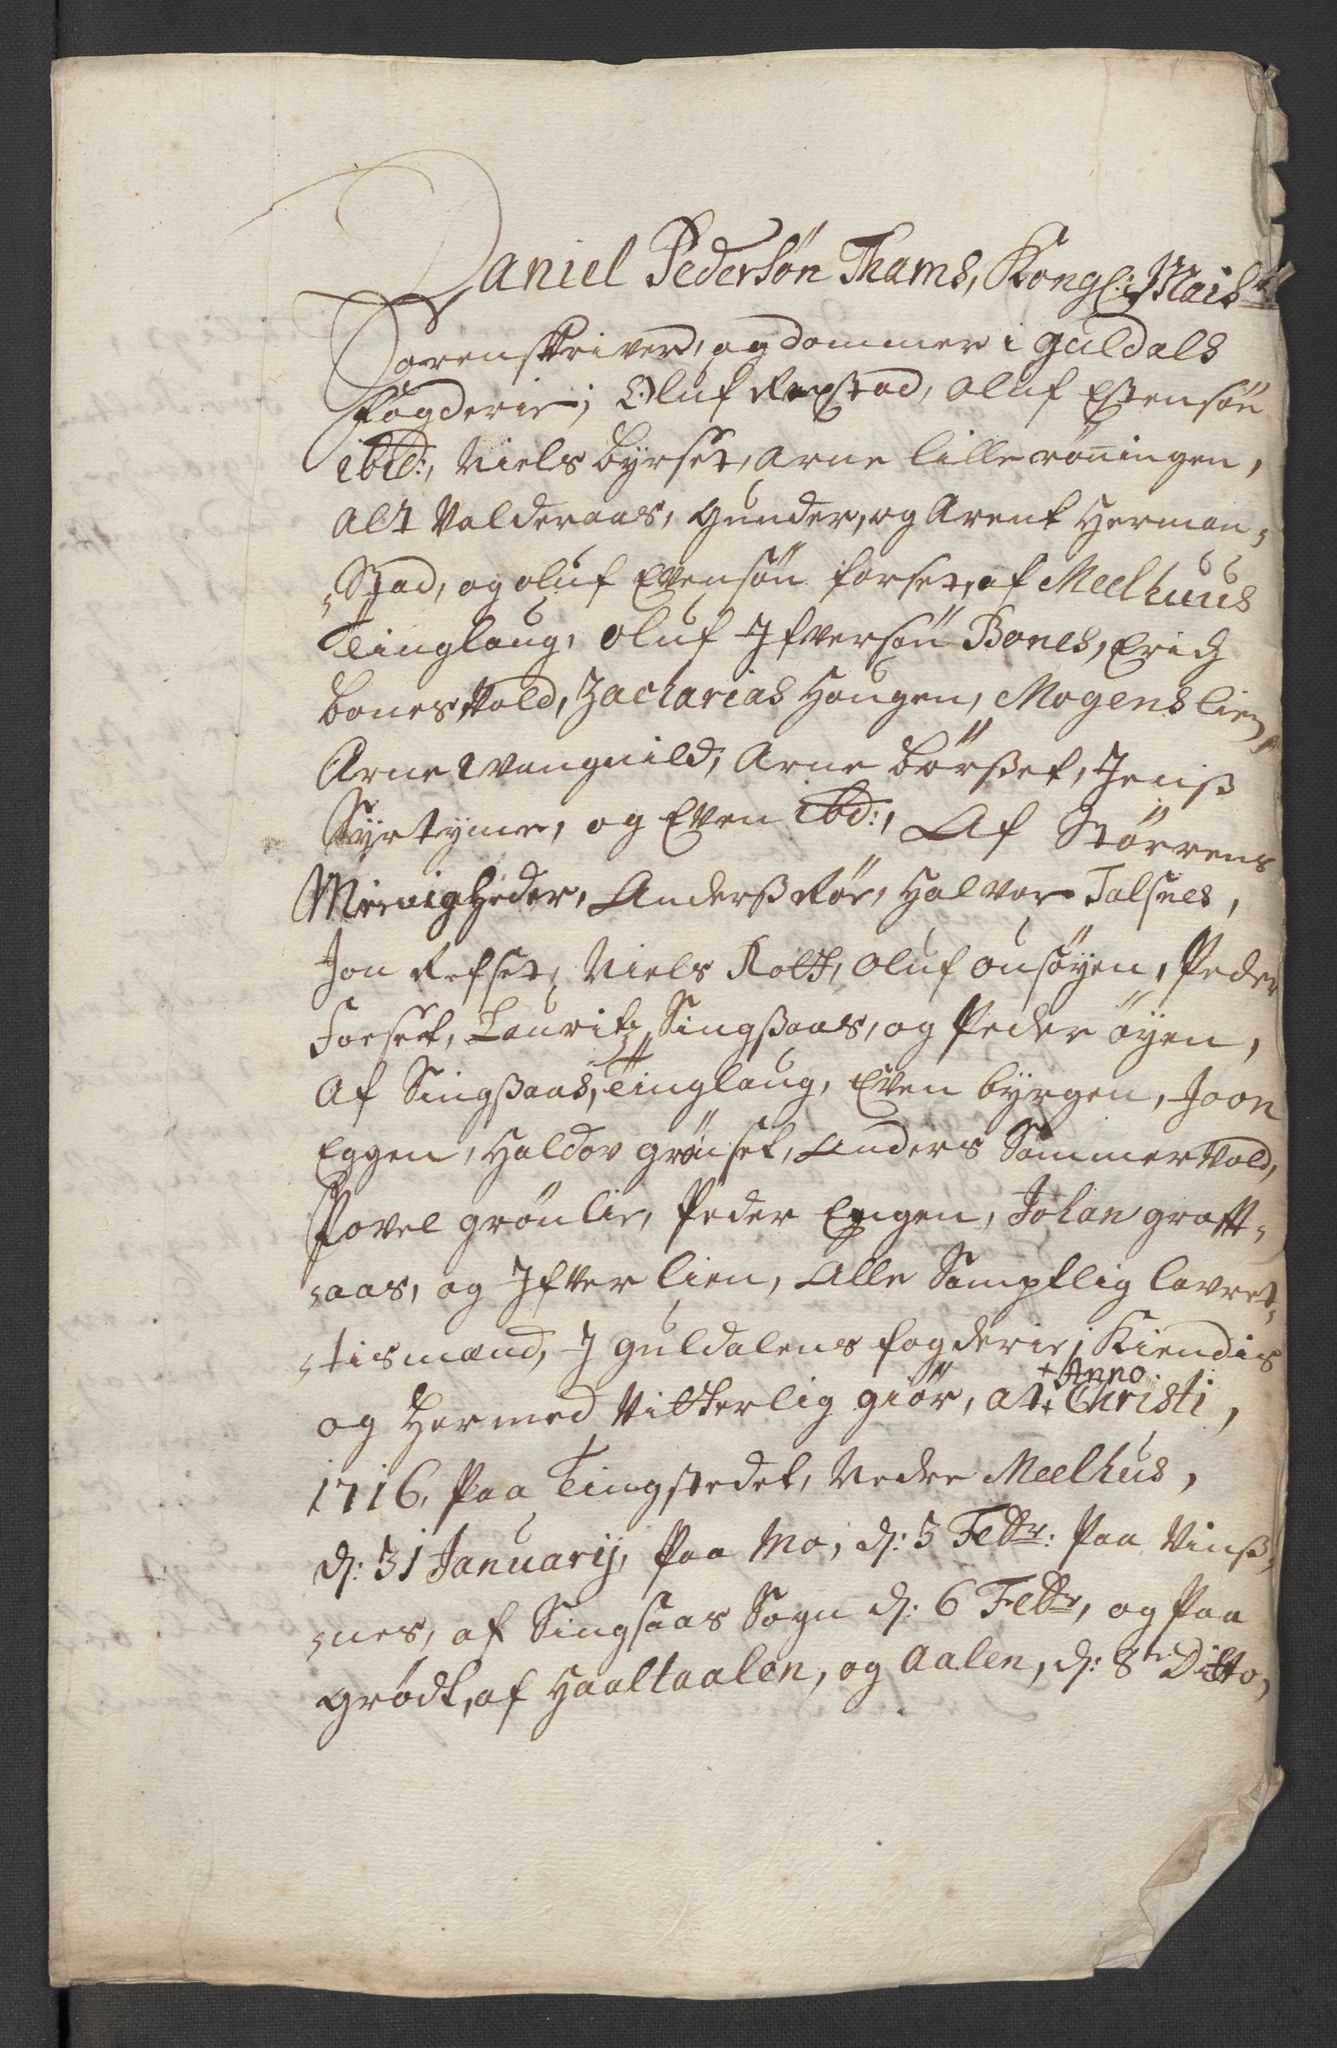 Daniel Pedersøn Thams, Kongl: Maists
Sorenskriver, og dommer i Guldals
Fogderie; Oluf Repstad, Oluf Estensøn
ibid:, Niels byrset, Arne lille rønningen,
Alt Valderaas, Gunder, og Arent Herman„
„Stad, og oluf Evensøn forset, af Meelhuus
Tinglaug, oluf Ifversøn Bones, Erich
bones Vold, Zacharias Hougen, Mogens lien,
Arne Wanguild, Arne børset, Jenß
Syrtyme, og Even ibd:, Af Størrens
Meenigheder, Anderß Røe, Halvor Talsnes,
Jon Refset, Niels Rott, oluf ousøyen, Peder
Forset, Lauritz Singßaas, og Peder øyen,
Af Singßaas, Tinglaug, Even byrgen, Joon
Eggen, Haldov grønset, Anders Sommervold,
Povel grønlie, Peder Engen, Johan gratt„
„aas, og Ifver lien, Alle Samptlig lavret„
„tismænd, I guldalens fogderie, Kiendis
og Hermed Vitterlig giør, at + Anno Christi,
1716, Paa Tingstedet, Nedre Meelhus,
d: 31 Januarij, Paa Mo, d: 3 Febr: Paa Vinß„
„nes, af Singsaas Sogn d: 6 Febr, og Paa
grødt, af Haaltaalen, og Aalen, d: 8de Ditto,